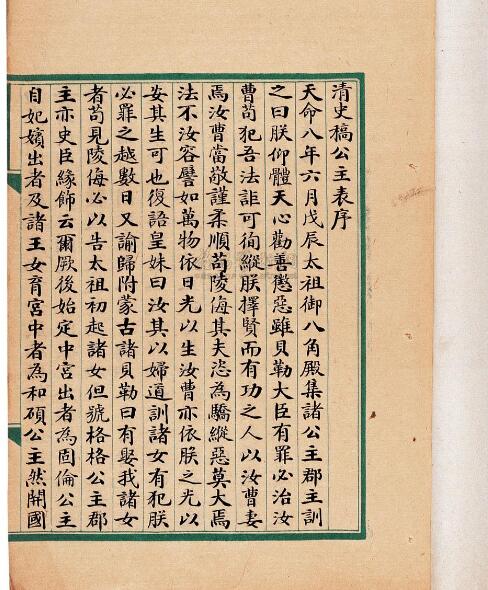 清史稿公主表序
天命八年六月戊辰太祖御八角殿集諸公主郡主訓
之曰朕仰體天心勸善懲惡雖貝勒大臣有罪必治汝
曹苟犯吾法詎可徇縱朕擇賢而有功之人以汝曹妻
焉汝曹當敬謹柔順苟陵侮其夫恣為驕縱惡莫大焉
法不汝容譬如萬物依日光以生汝曹亦依朕之光以
安其生可也復語皇妹曰汝其以婦道訓諸女有犯朕
必罪之越數日又諭歸附蒙古諸貝勒曰有娶我諸女
者苟見陵侮必以告太祖初起諸女但號格格公主郡
主亦史臣緣飾云爾厥後始定中宮出者為固倫公主
自妃嬪出者及諸王女育宮中者為和碩公主然開國